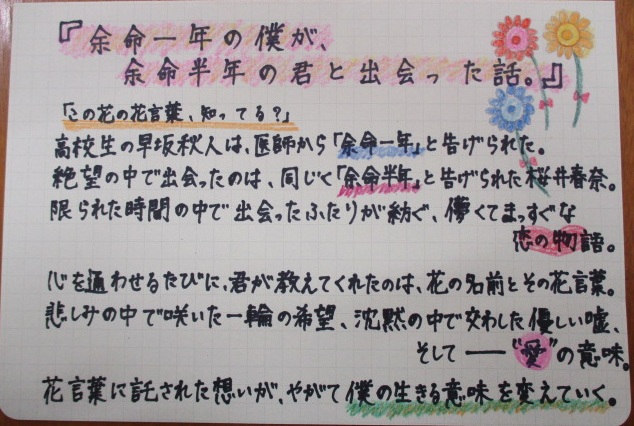 『余命一年の僕が、
余命半年の君と出会った話。』
「この花の花言葉、知ってる？」
高校生の早坂秋人は、医師から「余命一年」と告げられた。
絶望の中で出会ったのは、同じく「余命半年」と告げられた桜井春奈。
限られた時間の中で出会ったふたりが紡ぐ、儚くてまっすぐな
恋の物語。
心を通わせるたびに、君が教えてくれたのは、花の名前とその花言葉。
悲しみの中で咲いた一輪の希望、沈黙の中で交わした優しい嘘、
そして──“愛”の意味。
花言葉に託された想いが、やがて僕の生きる意味を変えていく。